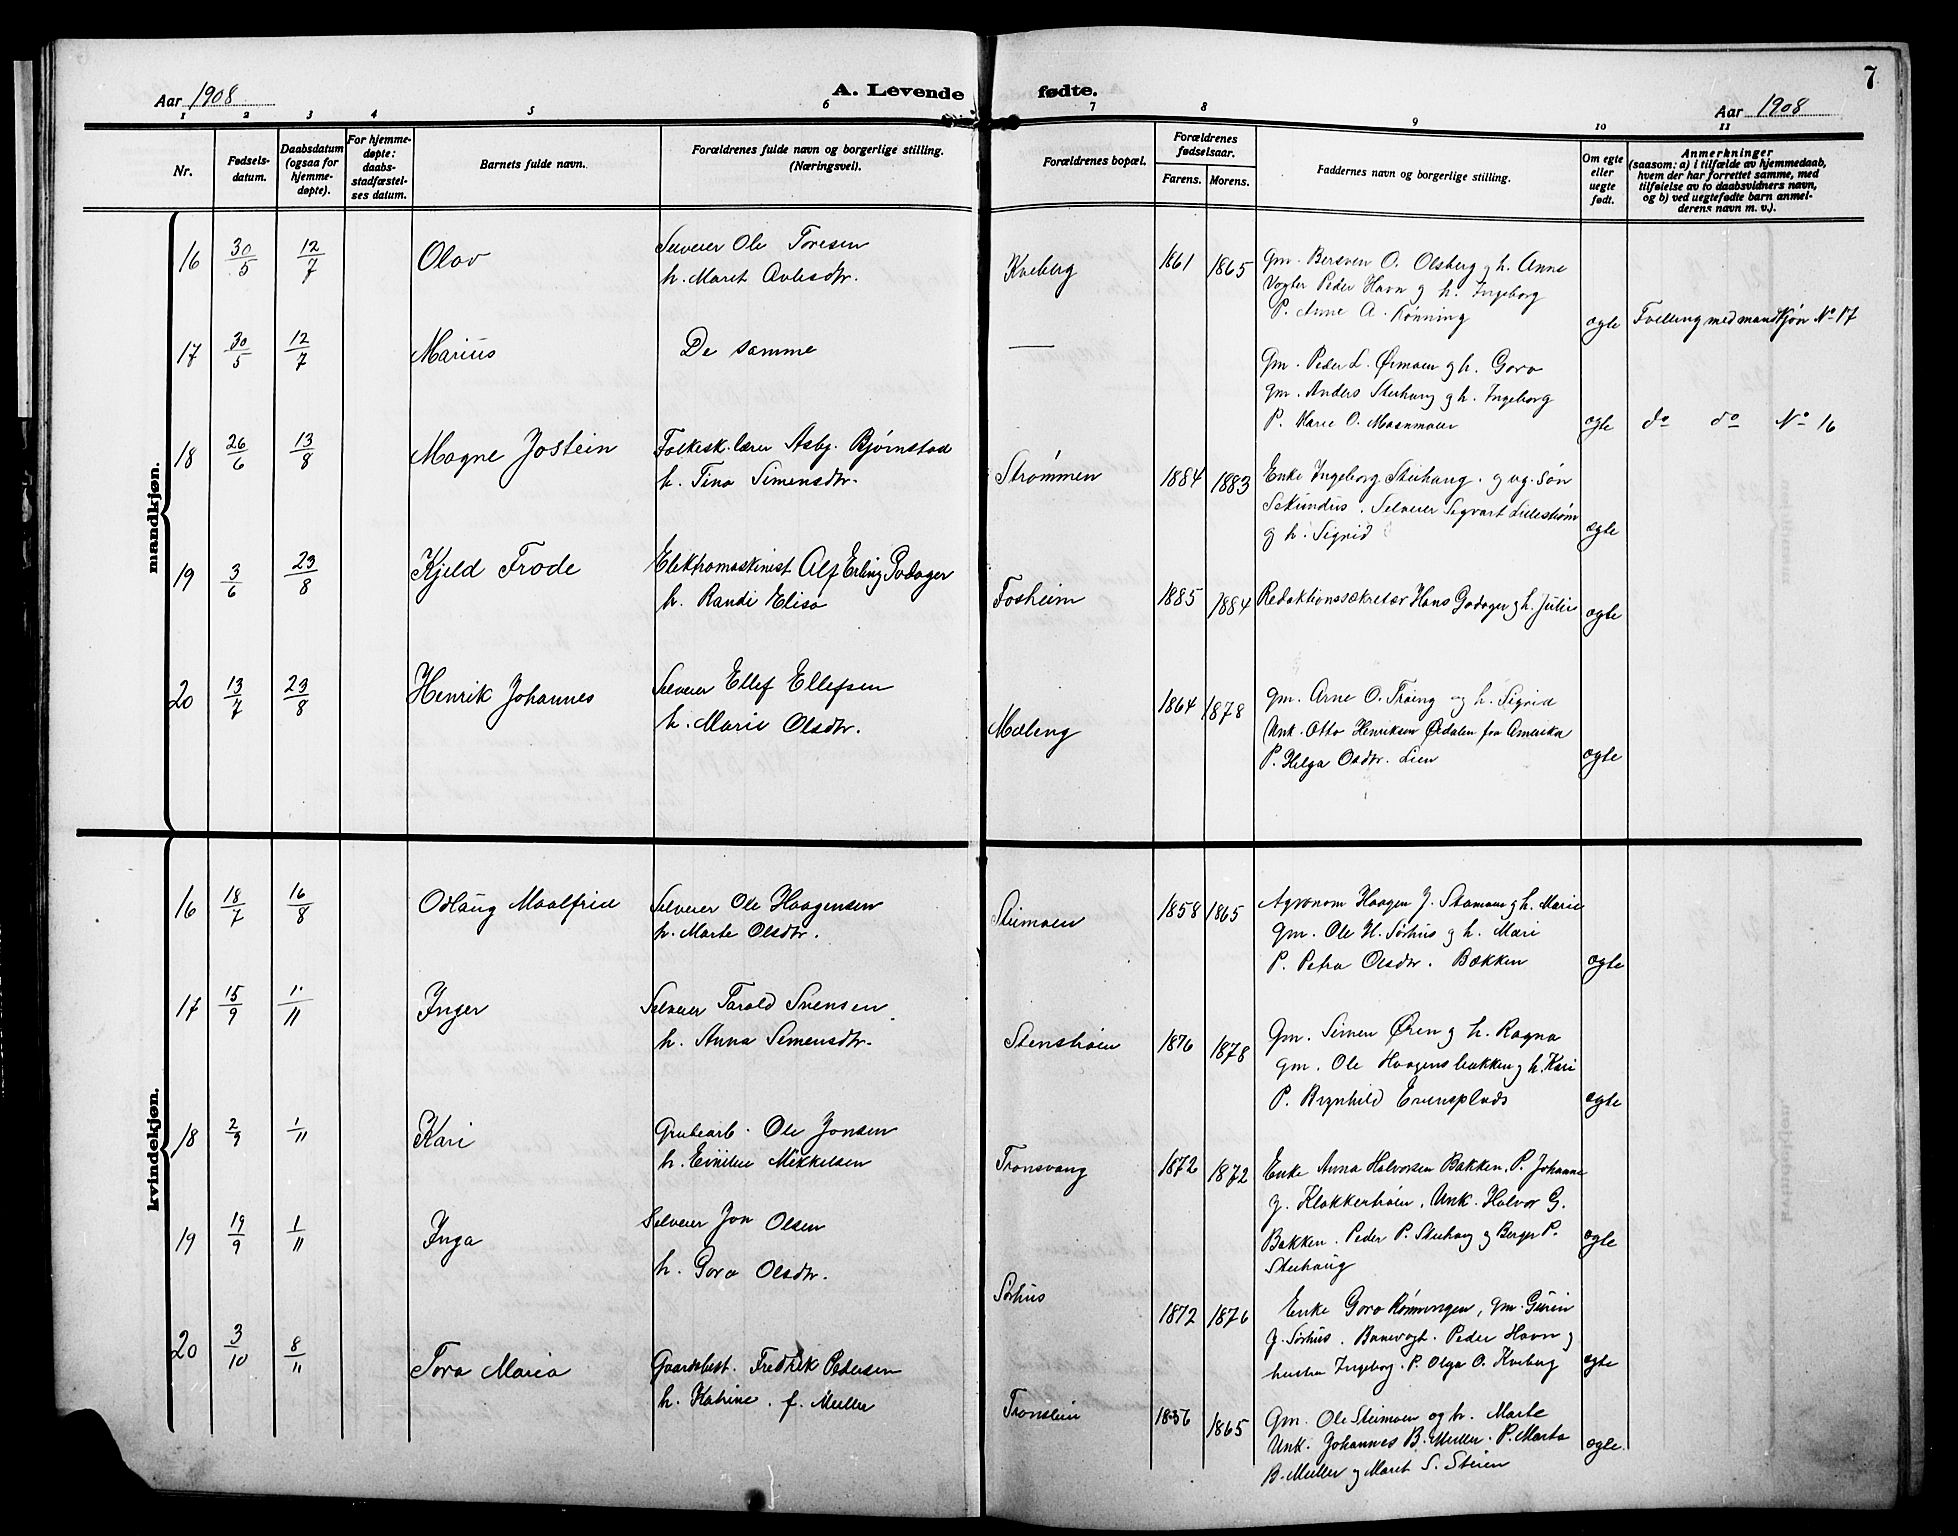 7
Aar 1908
A. Levende fødte.
Aar 1908
1 2 3 4 5 6 7 8 9 10 11
Nr.
Fødsels-
datum.
Daabsdatum
(ogsaa for
hjemme-
døpte).
For hjemme-
døpte:
daabs-
stadfæstel-
ses datum.
Barnets fulde navn.
Forældrenes fulde navn og borgerlige stilling.
(Næringsvei).
Forældrenes bopæl.
Forældrenes
fødselsaar.
Farens. Morens.
Faddernes navn og borgerlige stilling.
Om egte
eller
uegte
født.
Anmerkninger
(saasom: a) i tilfælde av hjemmedaab,
hvem der har forrettet samme, med
tilføielse av to daabsvidners navn,
og b) ved uegtefødte barn anmel-
derens navn m. v.).
mandkjøn.
16 30/5 12/7 Olav
Selveier Ole Toresen
h. Maret Avlesdtr.
Kveberg 1861 1865
Gm. Bersven O. Olsberg g h. Anne
Vogter Peder Havn g h. Ingeborg
P. Anne A. Rønning
ægte Tvilling med mandkjøn No 17
17 30/5 12/7 Marius
De samme
—
Gm. Peder L. Ørmoen g h. Goro
gm. Anders Steihaug g h. Ingeborg
P. Marie O. Moanmoen
ægte do do No 16
18 26/6 13/8 Magne Jostein
Folkesk. lærer Asbj. Bjørnstad
h. Tina Simensdtr.
Strømmen 1884 1883
Enke Ingeborg Steihaug. g ug. søn
Sekundus. Selveier Sigvart Lillestrøm
g h. Sigrid
ægte
19 3/6 23/8 Kjeld Frode
Elektromaskinist Alf Erling Godager
h. Randi Elisa
Fosheim 1885 1884
Redaktionssekretær Hans Godager g h. Julie
ægte
20 13/7 23/8 Henrik Johannes
Selveier Ellef Ellefsen
h. Marie Olsdtr.
Moeng 1864 1878
gm. Arne O. Trøeng og h. Sigrid
Unk. Otto Henriksen Ørdalen fra Amerika
P. Helga Olsdtr. Lien
ægte
kvindekjøn.
16 18/7 16/8 Odlaug Maalfrid
Selveier Ole Haagensen
h. Marte Olsdtr.
Steimoen 1858 1865
Agronom Haagen J. Stamoen g h. Marie
gm. Ole H. Sørhus g h. Mari
P. Petra Olsdtr. Bækken
ægte
17 15/9 1/11 Inger
Selveier Tarald Svensen
h. Anna Simensdtr.
Stenshøien 1876 1878
Gm. Simen Øien g h. Ragna
gm. Ole Haagensbakken g h. Kari
P. Brynhild Evensplads
ægte
18 2/9 1/11 Kari
Grubearb. Ole Jonsen
h. Emilie Mikkelsen
Tronsvang 1872 1872
Enke Anna Halvorsen Bakken, P. Johanne
J. Klokkerhøien, Unk. Halvor G.
Bakken. Peder P. Steihaug g Berger P.
Steihaug
ægte
19 19/9 1/11 Inga
Selveier Jon Olsen
h. Goro Olsdtr.
Sørhus 1872 1876
Enke Goro Rønningen, gm. Guren
J. Sørhus. Banevogt. Peder Havn g
hustru Ingeborg. P. Olga O. Kveberg
ægte
20 3/10 8/11 Tora Maria
Gaardbest. Fredrik Pedersen
h. Katrine. f. Müller
Tronslien 1856 1865
Gm. Ole Steimoen og h. Marte
Unk. Johannes B. Müller. P. Marta
B. Müller g Maret S. Steien
ægte.